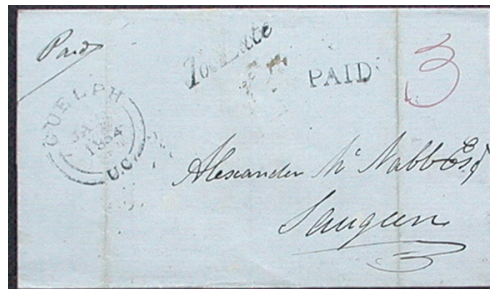 Paid
Too Late
PAID
3
GUELPH
JA
1854
U.C.
Alexander Mc Nabb Esqr
Saugeen